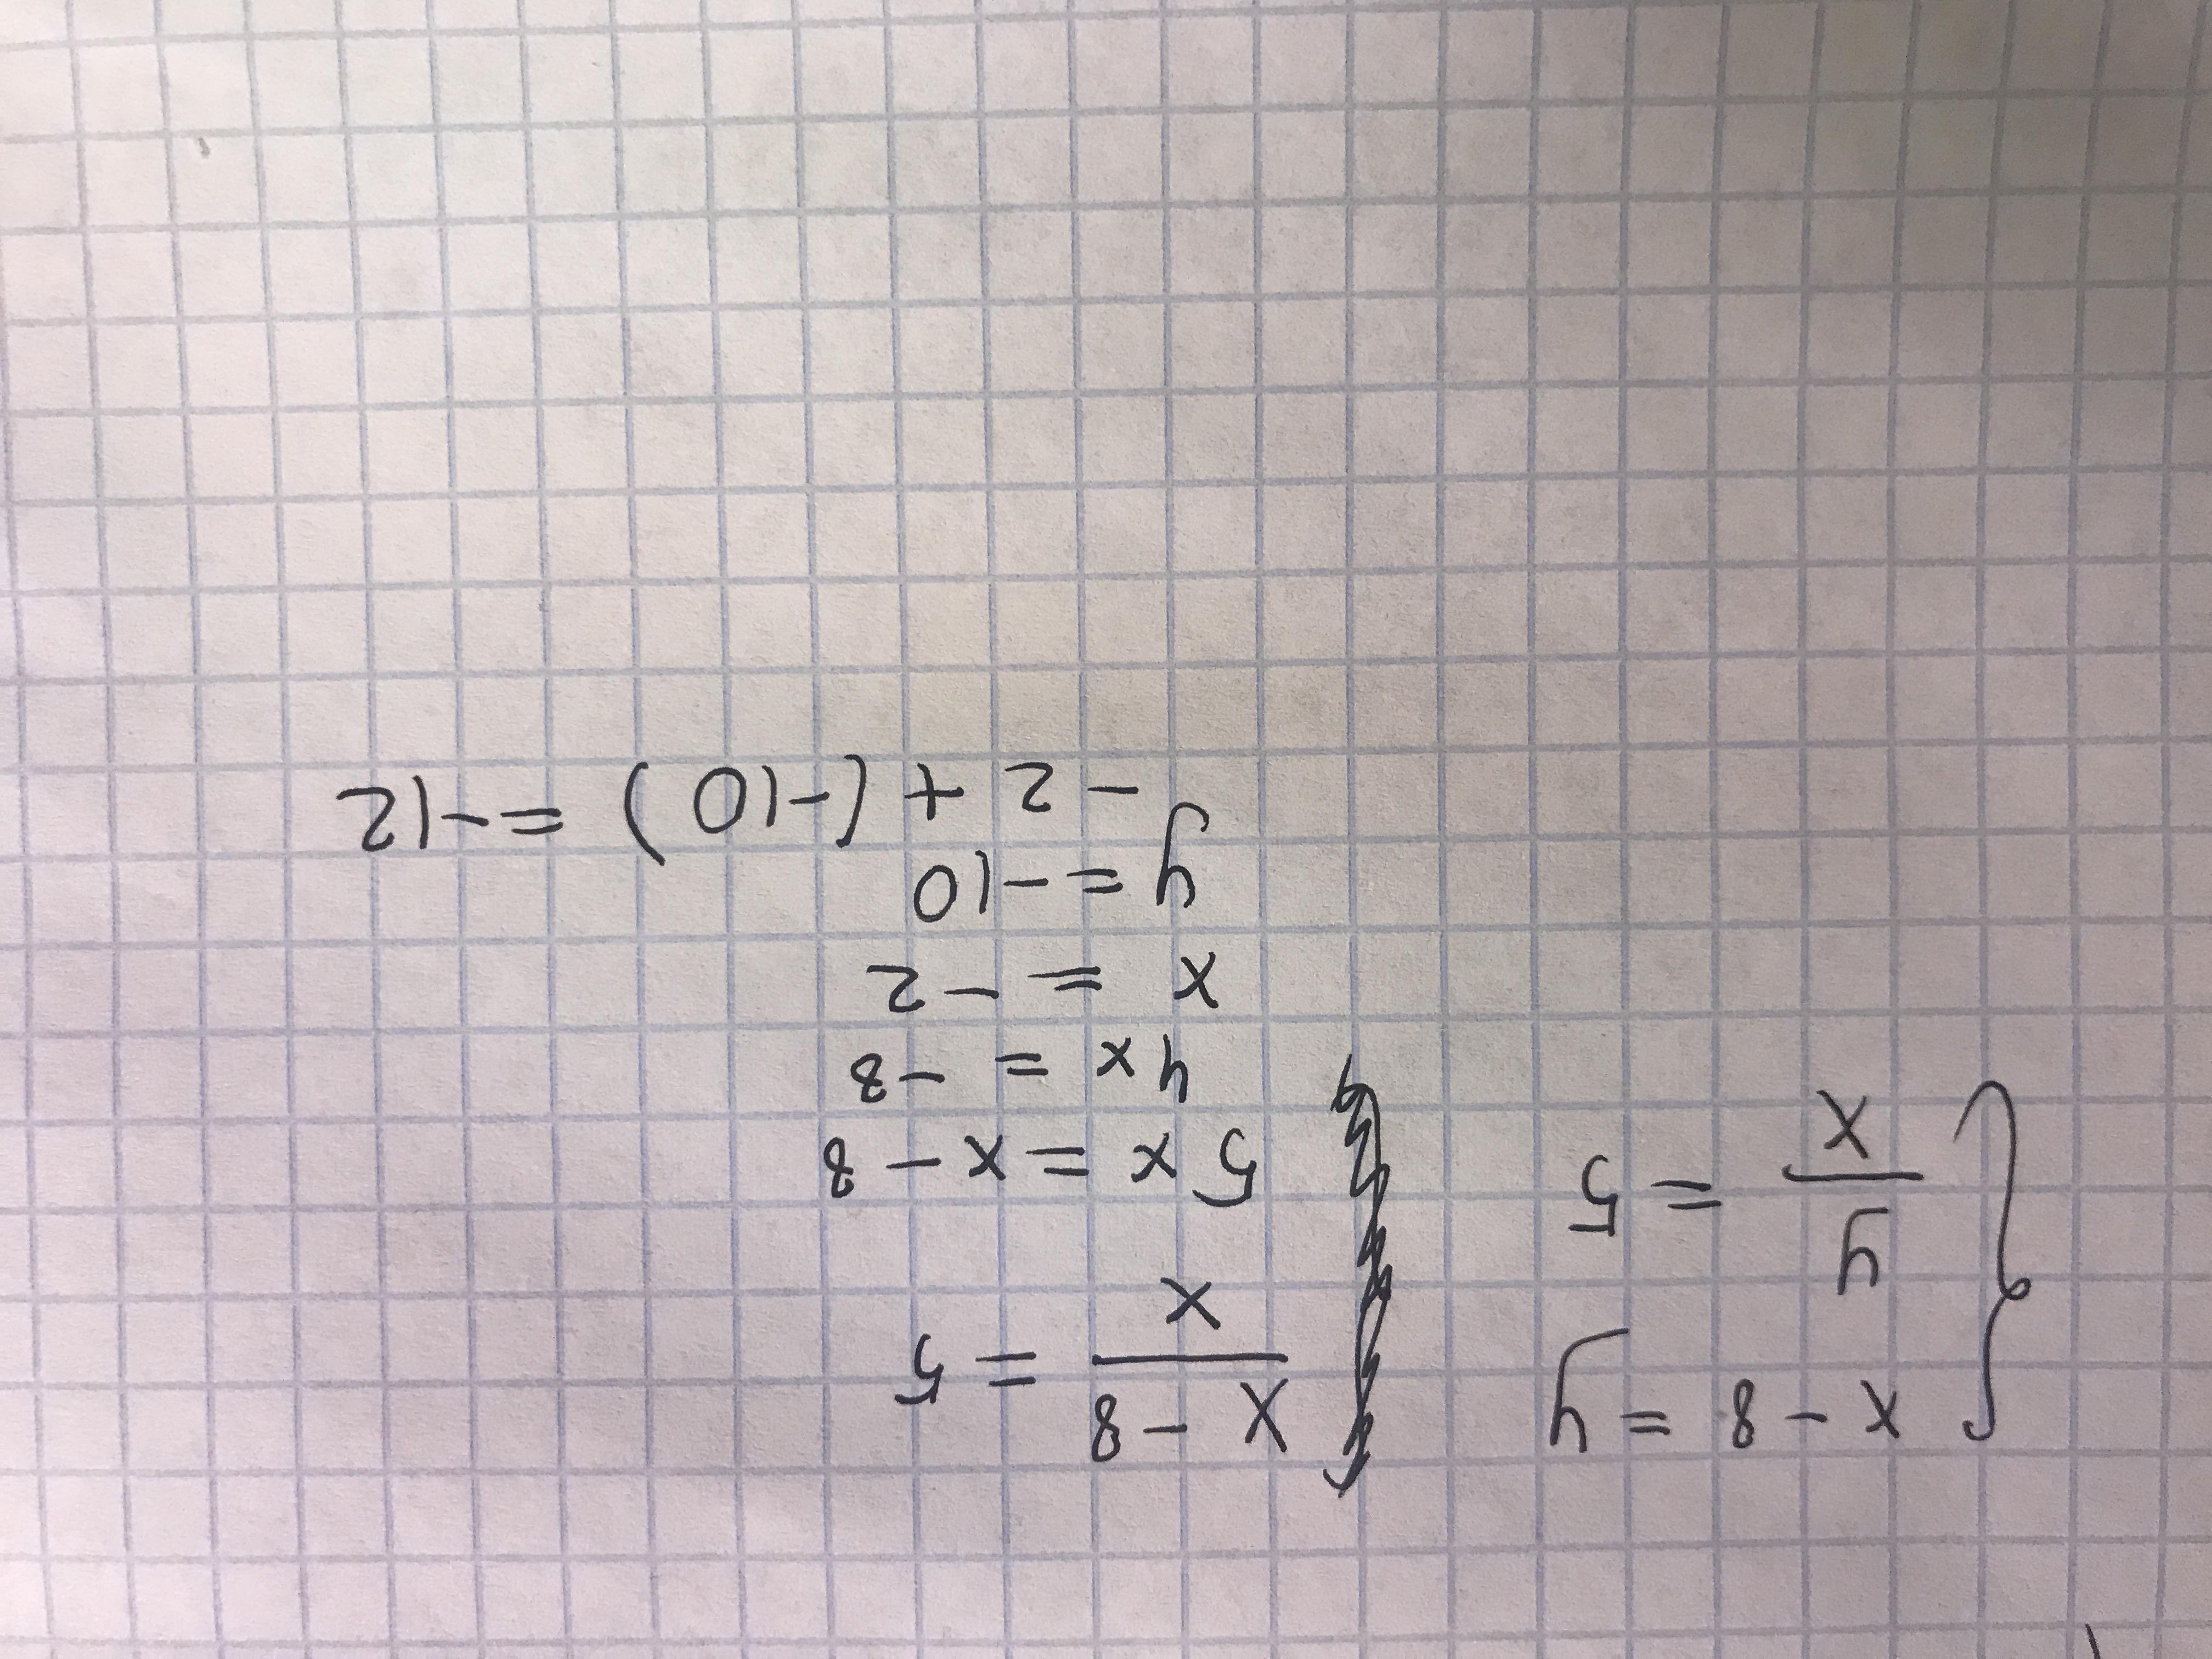 x - 8 = y
y/x = 5
x - 8/x = 5
5x = x - 8
4x = -8
x = -2
y = -10
-2 + (-10) = -12